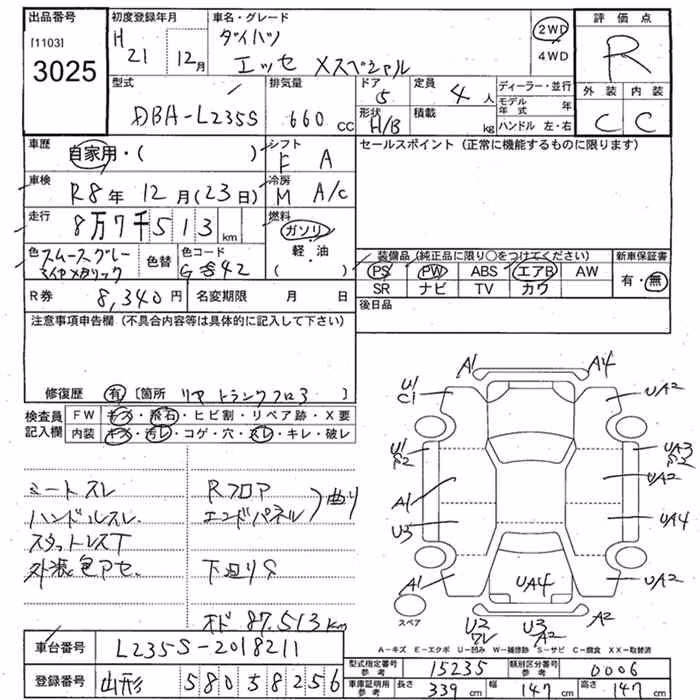 出品番号
[1103]
3025
初度登録年月
H 21 12月
車名・グレード
ダイハツ
エッセ Xスペシャル
2WD
4WD
評価点
R
外装 内装
C C
型式
DBA-L235S
排気量
660 CC
ドア
5
形状
H/B
定員
4人
積載
kg
ディーラー・並行
モデル年式 年
ハンドル 左・右
車歴
自家用・( )
シフト
F A
セールスポイント (正常に機能するものに限ります)
車検
R8年 12月(23日)
冷房
M A/c
走行
8万7千513km
燃料
ガソリ
軽・油
( )
色
スムースグレー
マイカメタリック
色替
色コード
装備品 (純正品に限り○をつけてください)
PS PW ABS エアB AW
SR ナビ TV カワ
新車保証書
有・無
R券 8,340円
名変期限 月 日
後日品
注意事項申告欄 (不具合内容等は具体的に記入して下さい)
修復歴 有 [箇所 リヤ トランクフロア ]
検査員記入欄
FW キズ・飛石・ヒビ割・リペア跡・X要
内装 キズ・汚レ・コゲ・穴・スレ・キレ・破レ
シートスレ
ハンドルスレ
スタットレスT
外装色アセ
Rフロア
エンドパネル
曲り
下廻りS
オド 87,513km
A1
A4
U1
C1
UA2
U1
S2
UA3
S2
A1
UA2
U3
UA4
A1
UA4
UA2
スペア
U2
ワレ
U3
A2
A2
A-キズ E-エクボ U-凹み W-補修跡 S-サビ C-腐食 XX-取替済
車台番号 L235S-2018211
型式指定番号 参考 15235
類別区分番号 参考 0006
登録番号 山形 580 5 8256
車庫証明用 参考 長さ 339 cm 幅 147 cm 高さ 147 cm